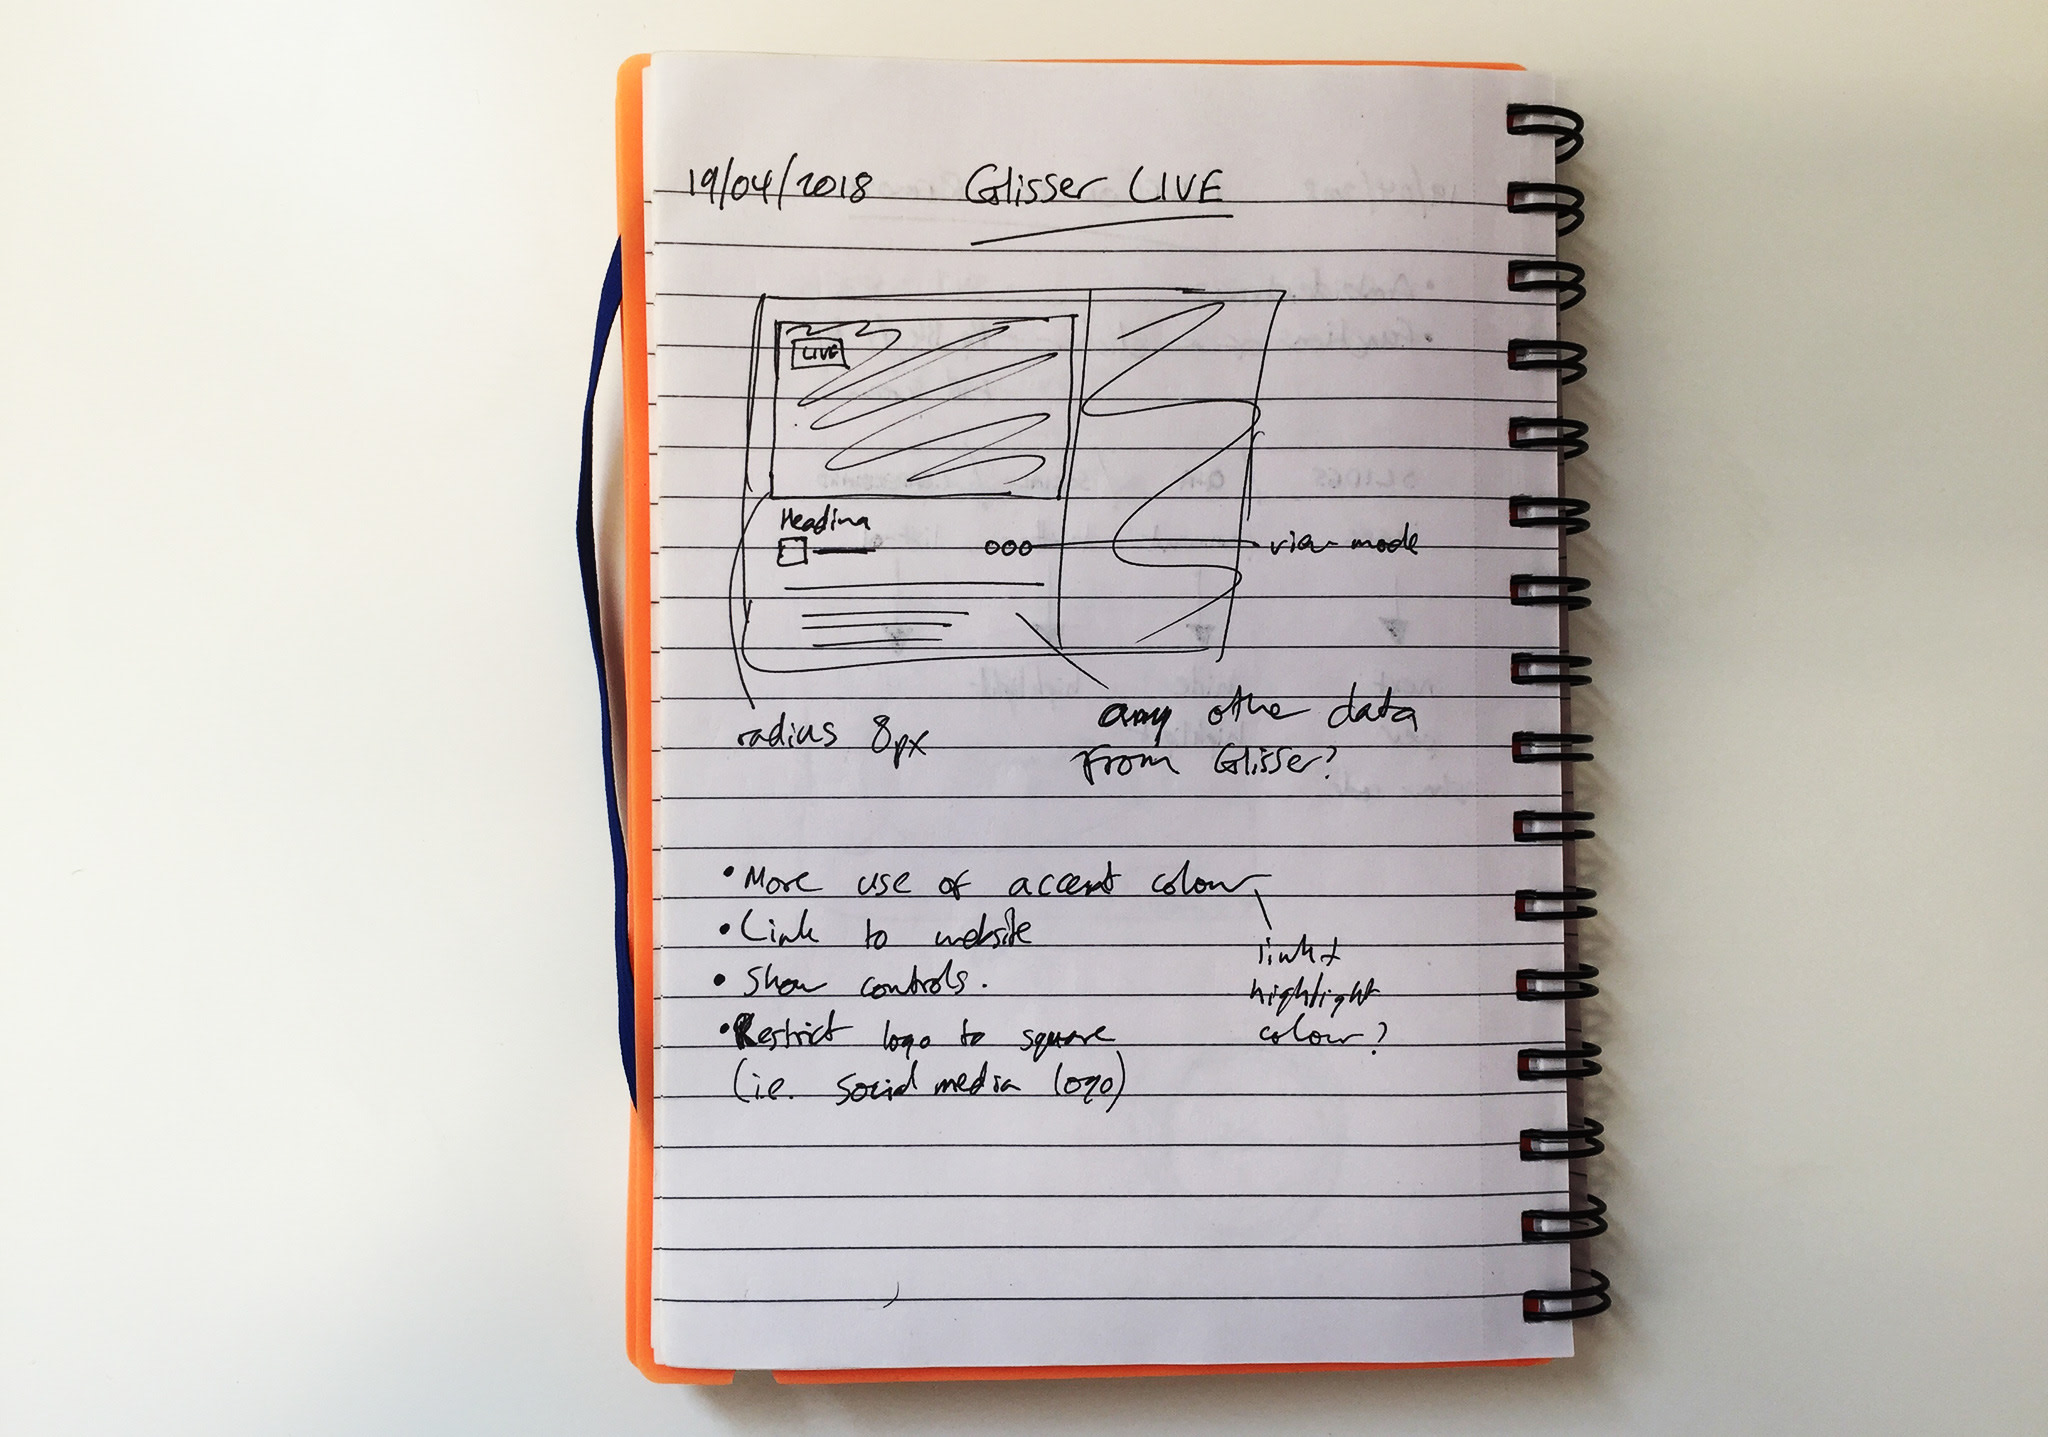 19/04/2018 Glisser LIVE
LIVE
Heading
view mode
radius 8px
any other data
from Glisser?
• More use of accent colour
• Link to website
• Show controls.
• Restrict logo to square
(i.e. social media logo)
link +
highlight
colour?